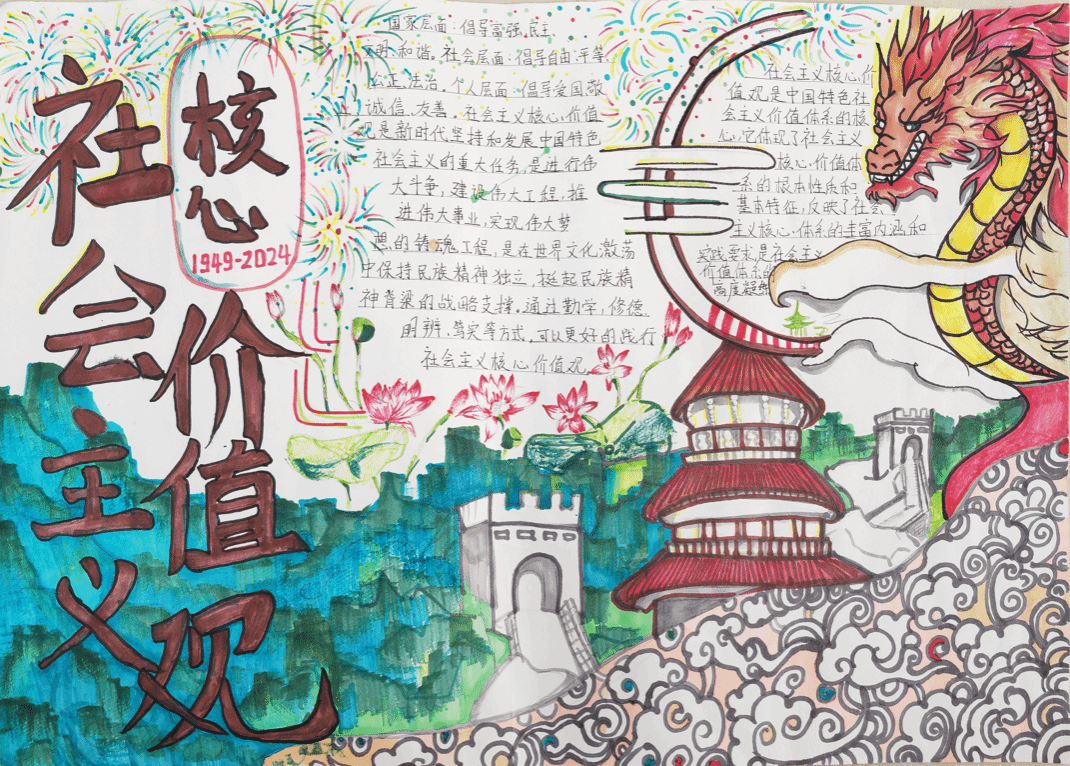 社会主义
核心
1949-2024
价值观
国家层面:倡导富强,民主
文明、和谐,社会层面:倡导自由、平等,
公正、法治,个人层面:倡导爱国、敬
业、诚信、友善。社会主义核心价值
观是新时代坚持和发展中国特色
社会主义的重大任务,是进行伟
大斗争,建设伟大工程,推
进伟大事业,实现伟大梦
想的铸魂工程,是在世界文化激荡
中保持民族精神独立,挺起民族精
神脊梁的战略支撑,通过勤学,修德、
明辨、笃实等方式,可以更好的践行
社会主义核心价值观
社会主义核心价
值观是中国特色社
会主义价值体系的核
心,它体现了社会主义
核心价值体
系的根本性质和
基本特征,反映了社会
主义核心体系的丰富内涵和
实践要求,是社会主义
价值体系的
高度凝